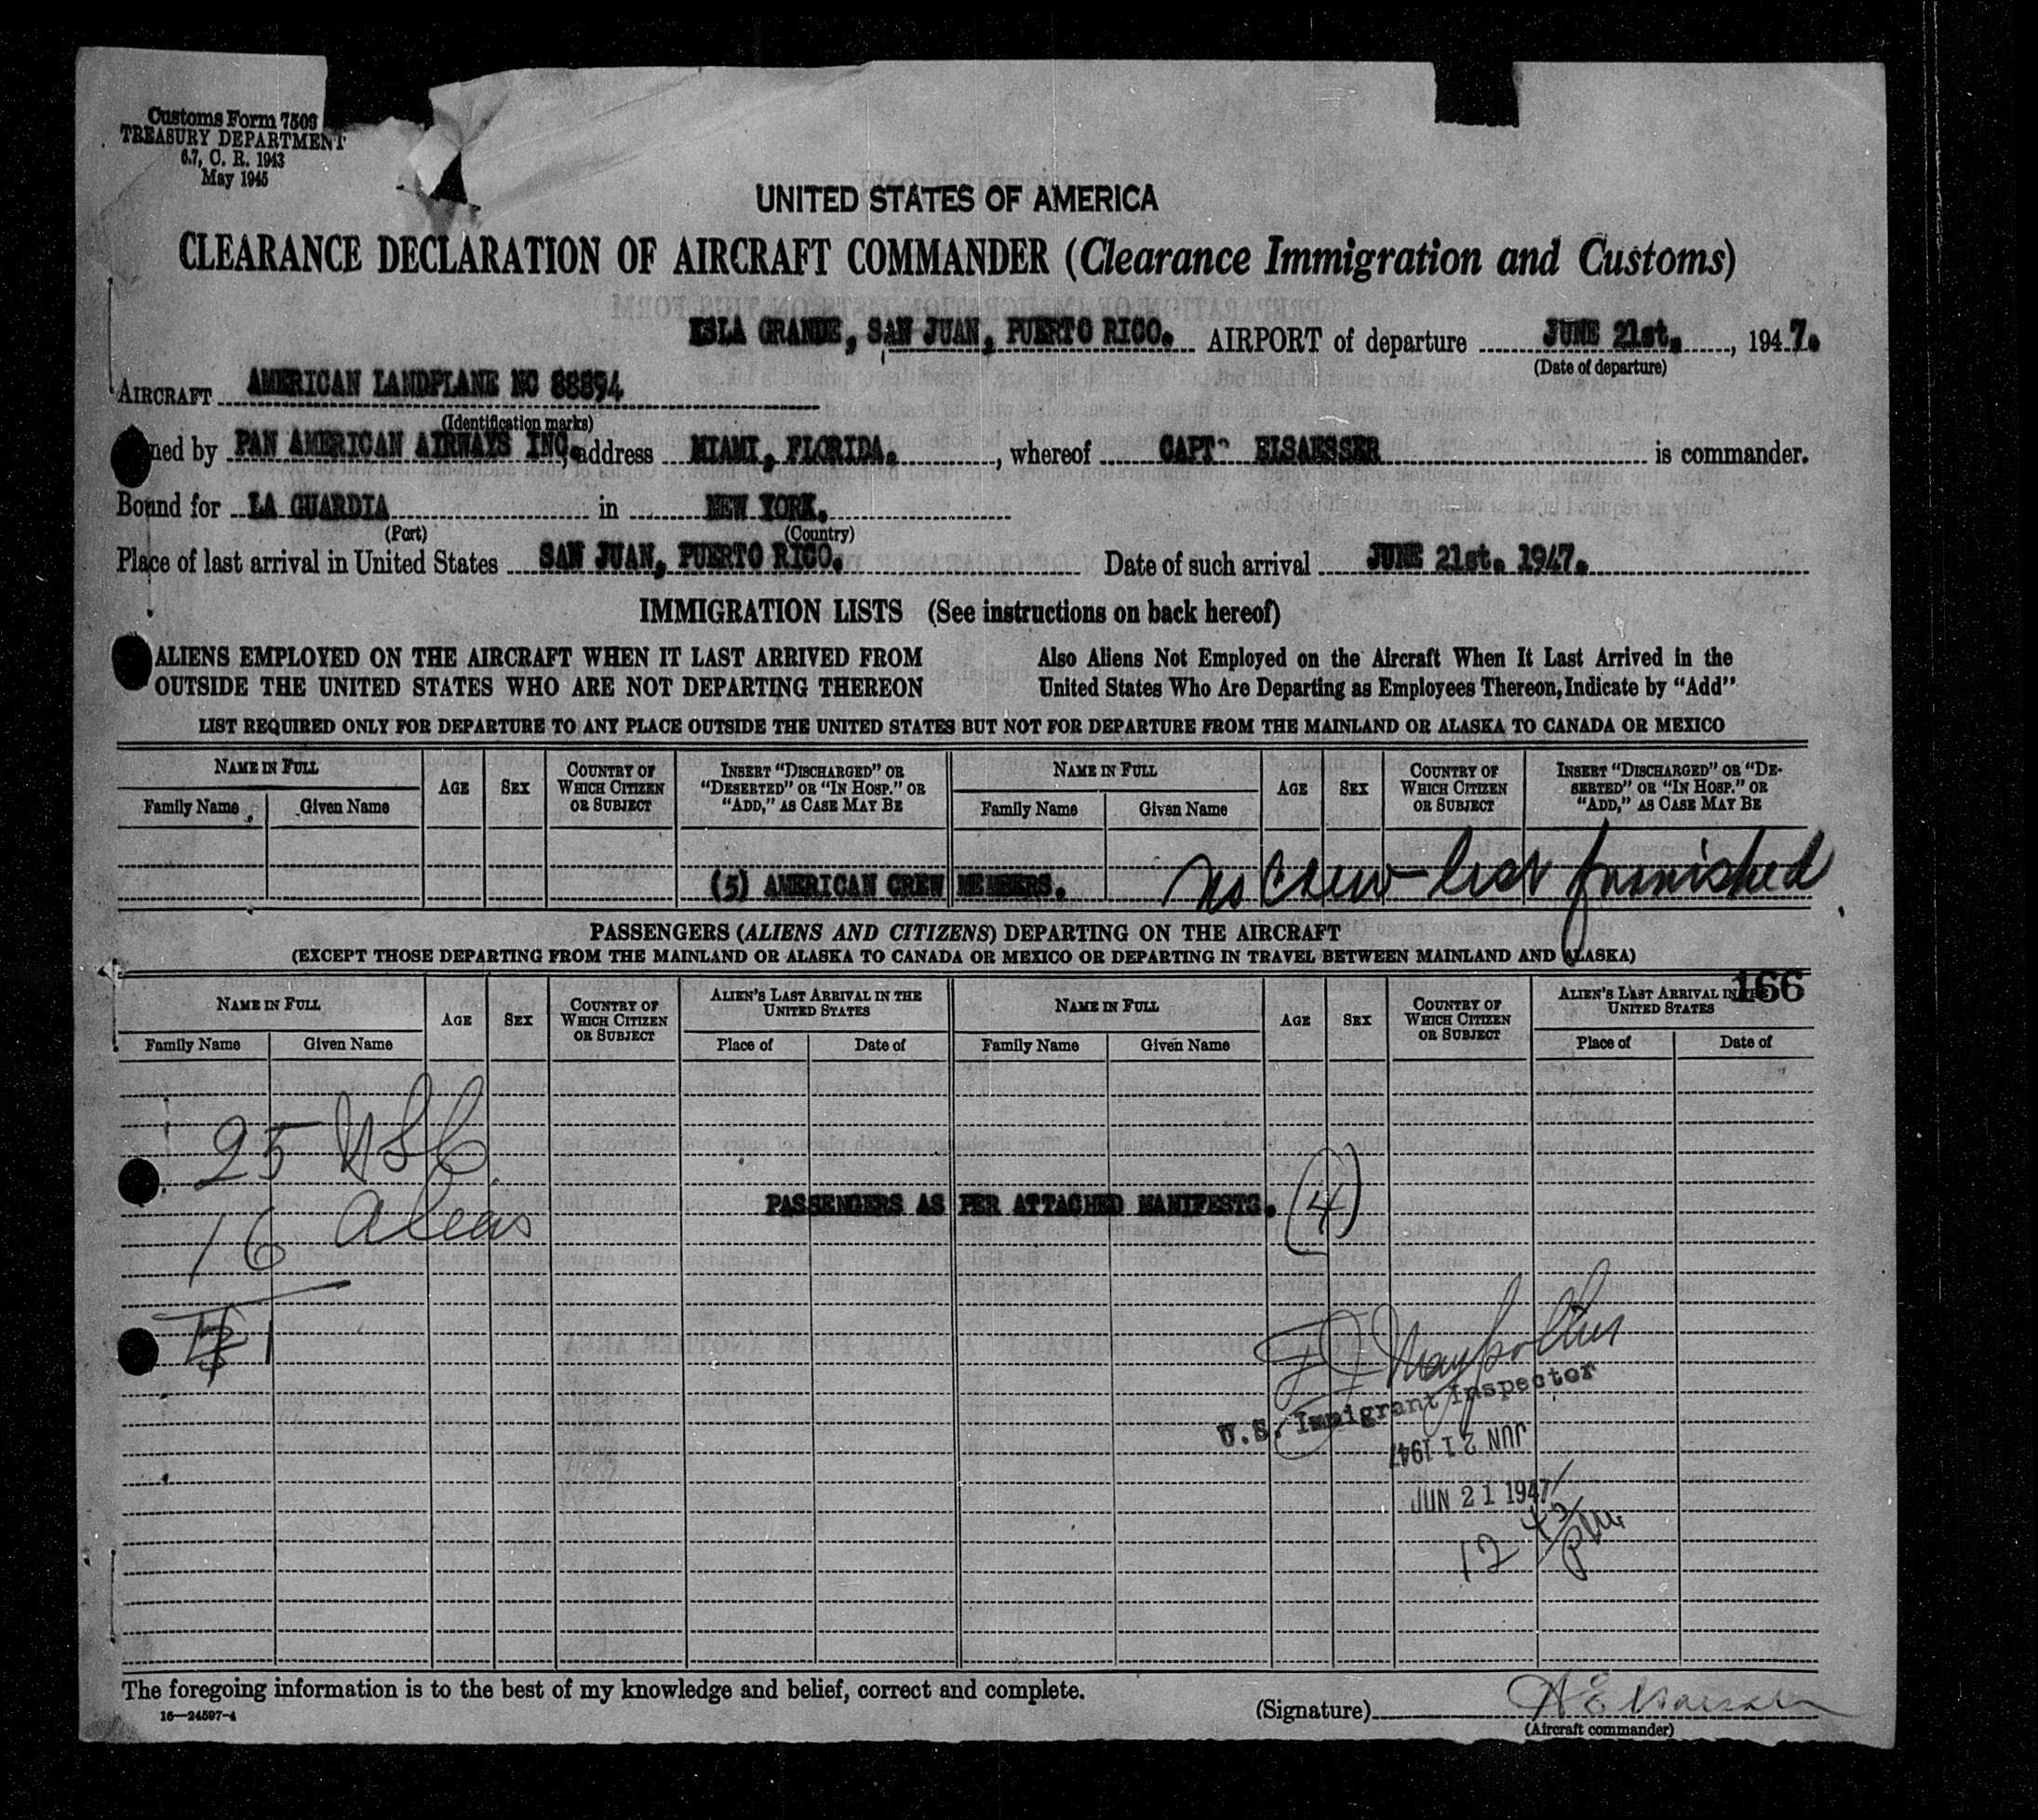 Customs Form 7509
TREASURY DEPARTMENT
6.7, C. R. 1943
May 1945
UNITED STATES OF AMERICA
CLEARANCE DECLARATION OF AIRCRAFT COMMANDER (Clearance Immigration and Customs)
ISLA GRANDE, SAN JUAN, PUERTO RICO. AIRPORT of departure JUNE 21st., 1947.
(Date of departure)
AIRCRAFT AMERICAN LANDPLANE NC 88894
(Identification marks)
ned by PAN AMERICAN AIRWAYS INC, address MIAMI, FLORIDA., whereof CAPT ELSAESSER is commander.
Bound for LA GUARDIA in NEW YORK.
(Port) (Country)
Place of last arrival in United States SAN JUAN, PUERTO RICO. Date of such arrival JUNE 21st. 1947.
IMMIGRATION LISTS (See instructions on back hereof)
ALIENS EMPLOYED ON THE AIRCRAFT WHEN IT LAST ARRIVED FROM Also Aliens Not Employed on the Aircraft When It Last Arrived in the
OUTSIDE THE UNITED STATES WHO ARE NOT DEPARTING THEREON United States Who Are Departing as Employees Thereon, Indicate by "Add"
LIST REQUIRED ONLY FOR DEPARTURE TO ANY PLACE OUTSIDE THE UNITED STATES BUT NOT FOR DEPARTURE FROM THE MAINLAND OR ALASKA TO CANADA OR MEXICO
NAME IN FULL AGE SEX COUNTRY OF WHICH CITIZEN OR SUBJECT INSERT "DISCHARGED" OR "DESERTED" OR "IN HOSP." OR "ADD," AS CASE MAY BE NAME IN FULL AGE SEX COUNTRY OF WHICH CITIZEN OR SUBJECT INSERT "DISCHARGED" OR "DE-SERTED" OR "IN HOSP." OR "ADD," AS CASE MAY BE
Family Name Given Name Family Name Given Name
(5) AMERICAN CREW MEMBERS. No Crew list furnished
PASSENGERS (ALIENS AND CITIZENS) DEPARTING ON THE AIRCRAFT
(EXCEPT THOSE DEPARTING FROM THE MAINLAND OR ALASKA TO CANADA OR MEXICO OR DEPARTING IN TRAVEL BETWEEN MAINLAND AND ALASKA)
166
NAME IN FULL AGE SEX COUNTRY OF WHICH CITIZEN OR SUBJECT ALIEN'S LAST ARRIVAL IN THE UNITED STATES NAME IN FULL AGE SEX COUNTRY OF WHICH CITIZEN OR SUBJECT ALIEN'S LAST ARRIVAL IN THE UNITED STATES
Family Name Given Name Place of Date of Family Name Given Name Place of Date of
25 USC
PASSENGERS AS PER ATTACHED MANIFESTS. (4)
16 Aliens
U.S. Immigrant Inspector
JUN 21 1947
JUN 21 1947
12 45 PM
The foregoing information is to the best of my knowledge and belief, correct and complete.
16—24597-4
(Signature)
(Aircraft commander)